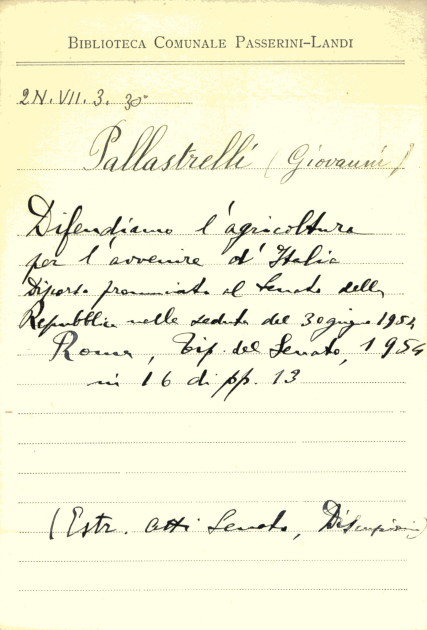 BIBLIOTECA COMUNALE PASSERINI-LANDI
2N.VII.3. 30°
Pallastrelli (Giovanni)
Difendiamo l'agricoltura
per l'avvenire d'Italia
Discorso pronunciato al Senato della
Repubblica nella seduta del 30 giugno 1954
Roma, Tip. del Senato, 1954
in 16 di pp. 13
(Estr. Atti Senato, Discussioni)